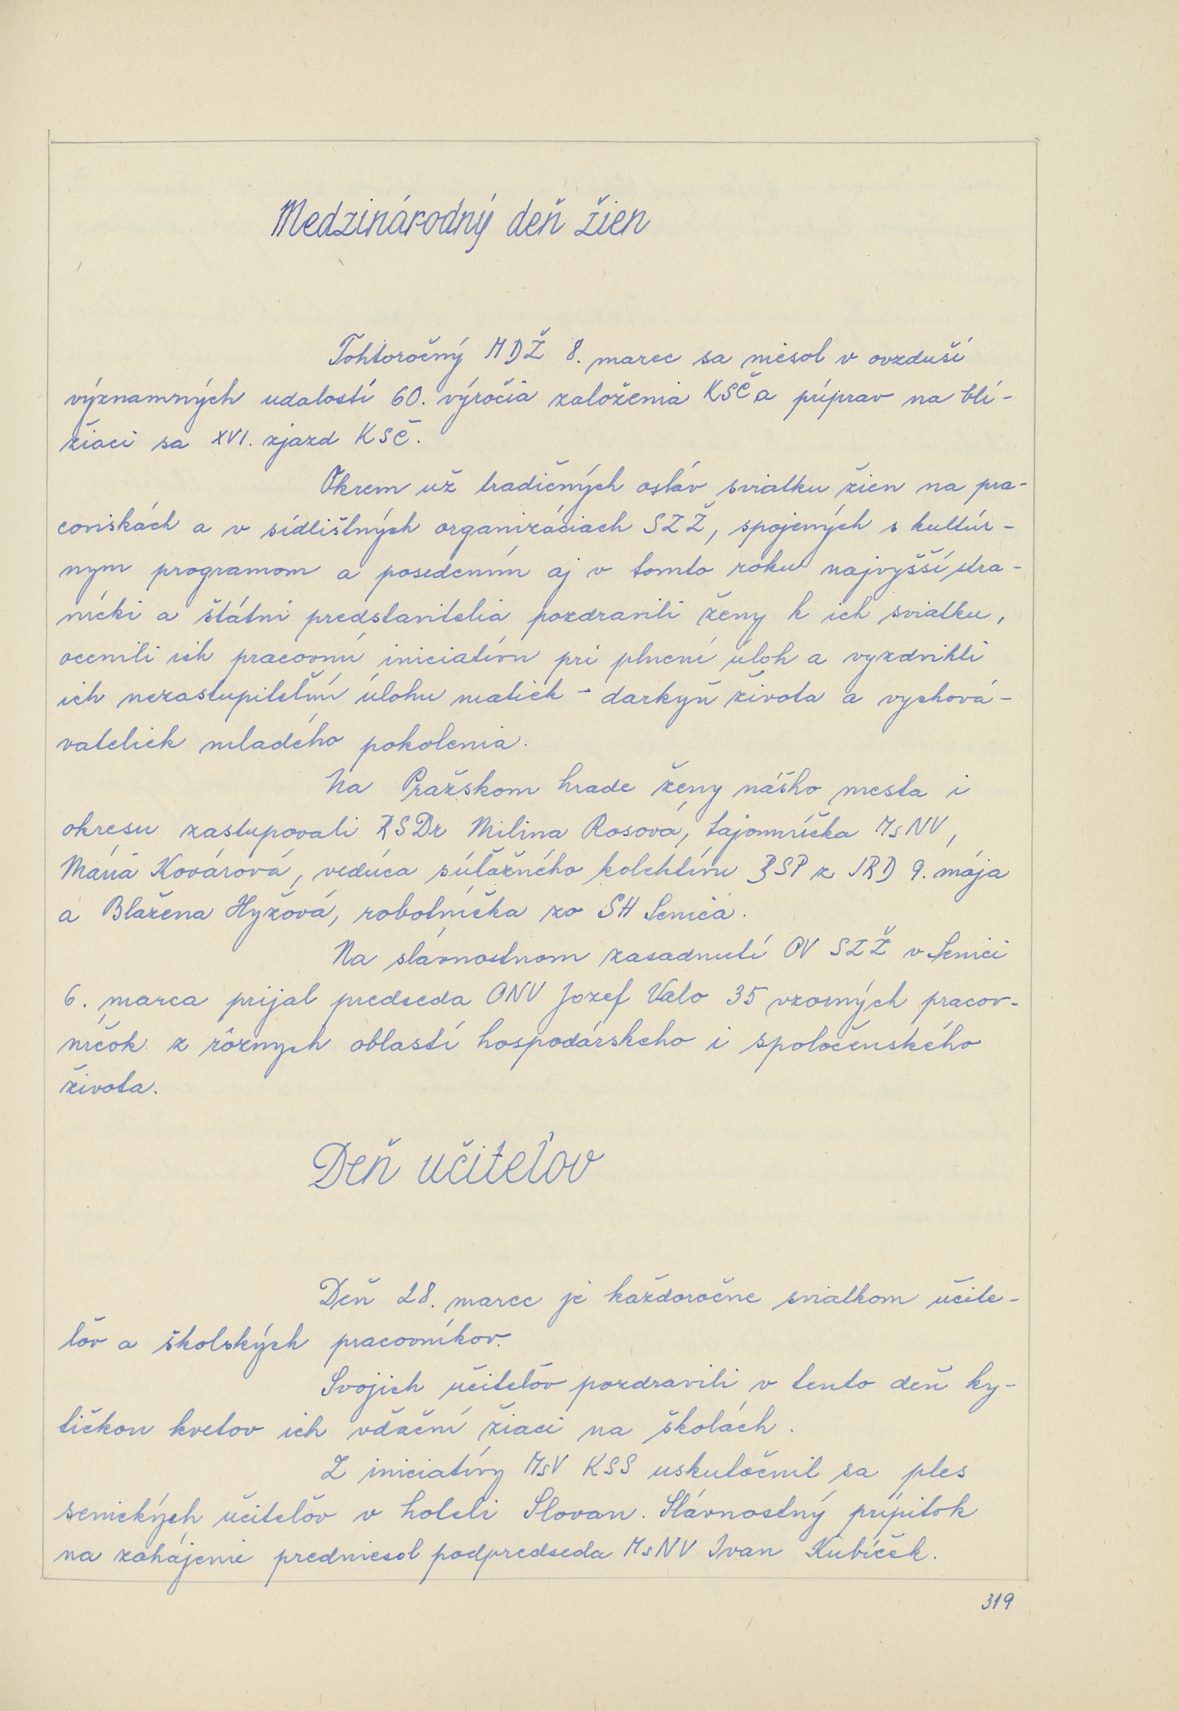 Medzinárodný deň žien
Tohtoročný MDŽ 8. marec sa niesol v ovzduší
významných udalostí 60. výročia založenia KSČ a príprav na blí-
žiaci sa XVI. zjazd KSČ.
Okrem už tradičných osláv sviatku žien na pra-
coviskách a v sídlištných organizáciach SZŽ, spojených s kultúr-
nym programom a posedením aj v tomto roku najvyšší stra-
nícki a štátni predstavitelia pozdravili ženy k ich sviatku,
ocenili ich pracovnú iniciatívu pri plnení úloh a vyzdvihli
ich nezastupiteľnú úlohu matiek - darkyň života a vychová-
vateliek mladého pokolenia.
Na Pražskom hrade ženy nášho mesta i
okresu zastupovali RSDr Milina Rosová, tajomníčka MsNV,
Mária Kovárová, vedúca súťažného kolektívu BSP z JRD 9. mája
a Blažena Hyžová, robotníčka zo SH Senica.
Na slávnostnom zasadnutí OV SZŽ v Senici
6. marca prijal predseda ONV Jozef Valo 35 vzorných pracov-
níčok z rôznych oblastí hospodárskeho i spoločenského
života.
Deň učiteľov
Deň 28. marec je každoročne sviatkom učite-
ľov a školských pracovníkov.
Svojich učiteľov pozdravili v tento deň ky-
tičkou kvetov ich vďační žiaci na školách.
Z iniciatívy MsV KSS uskutočnil sa ples
senických učiteľov v hoteli Slovan. Slávnostný prípitok
na zahájenie predniesol podpredseda MsNV Ivan Kubíček.
319